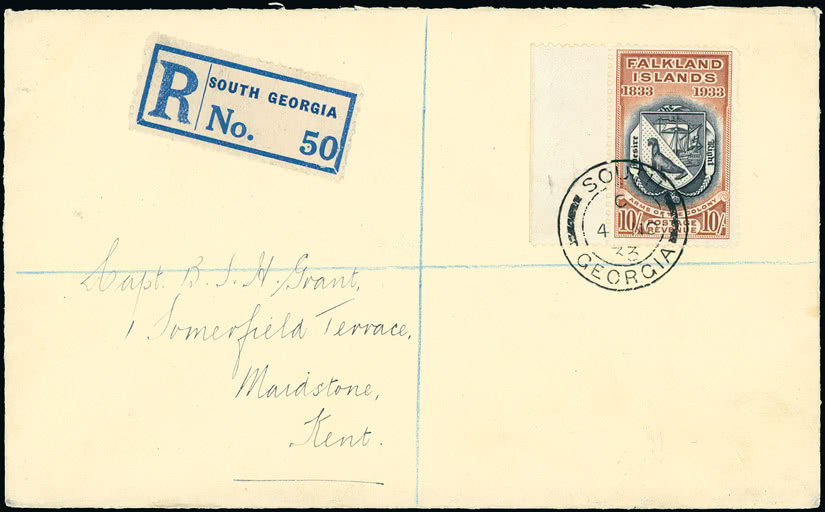 R SOUTH GEORGIA
No. 50
FALKLAND
ISLANDS
1833 1933
Desire
ARMS OF THE COLONY
10/- POSTAGE 10/-
REVENUE
SOUTH
C
4
33
GEORGIA
Capt. B. J. H. Grant,
1 Somerfield Terrace,
Maidstone,
Kent.